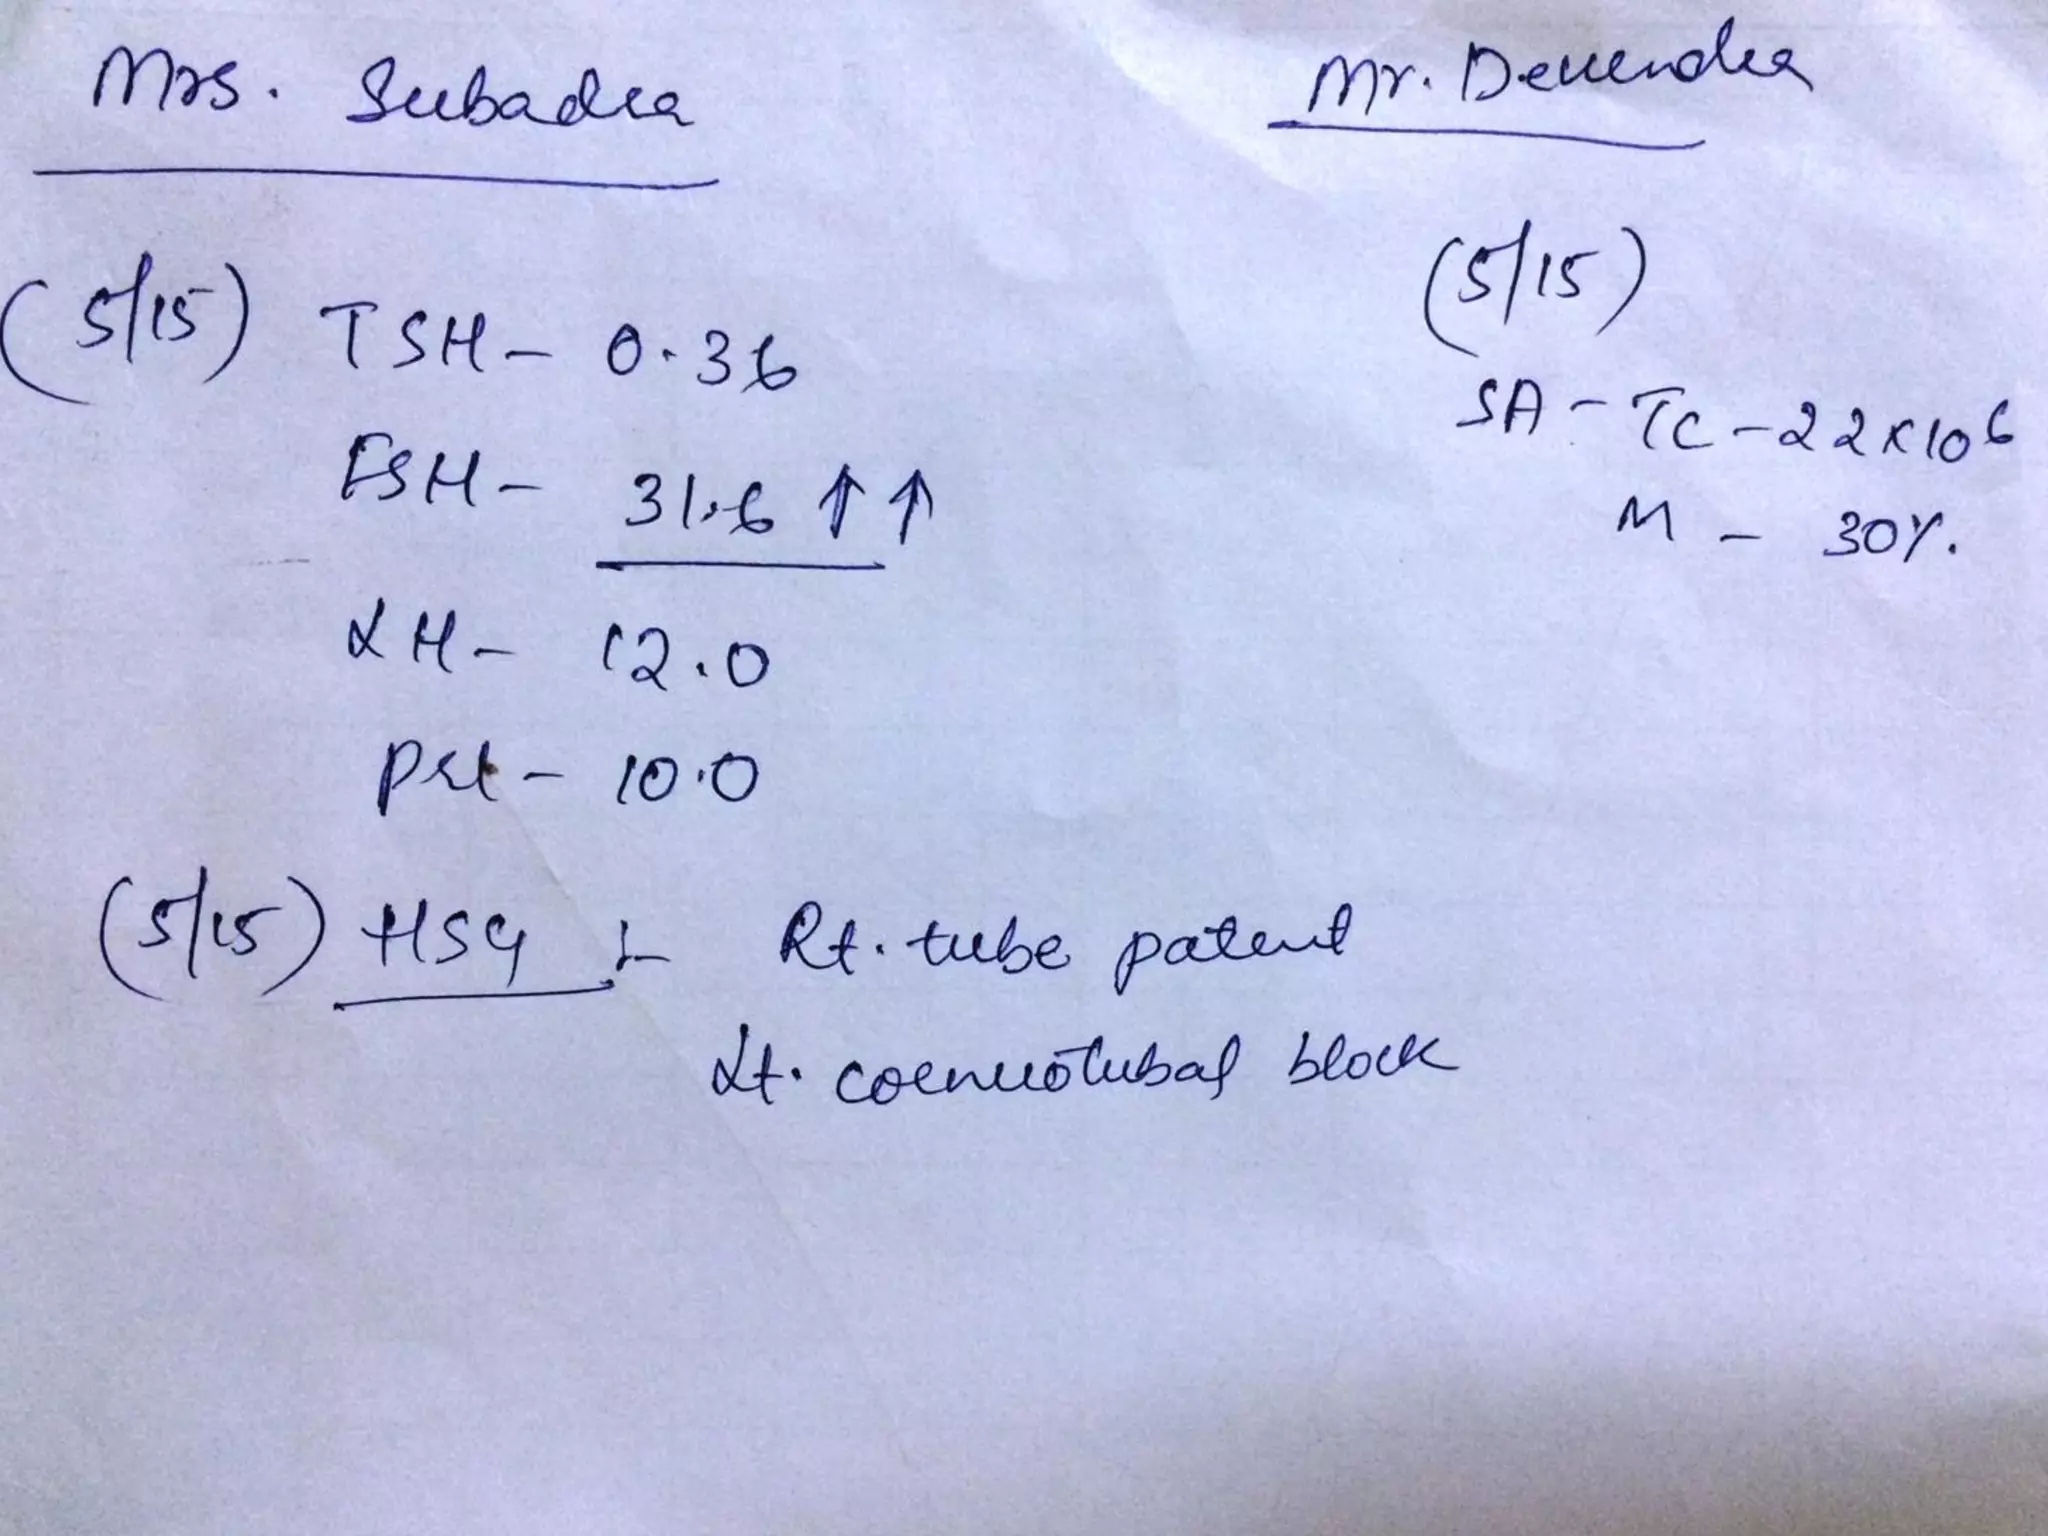 Mrs. Subadra
(5/15) TSH - 0.36
FSH - 31.6 ↑↑
LH - 12.0
Prl - 10.0
(5/15) HSG :- Rt. tube patent
Lt. cornuotubal block
Mr. Devendra
(5/15)
SA - TC - 22x10^6
M - 30%.